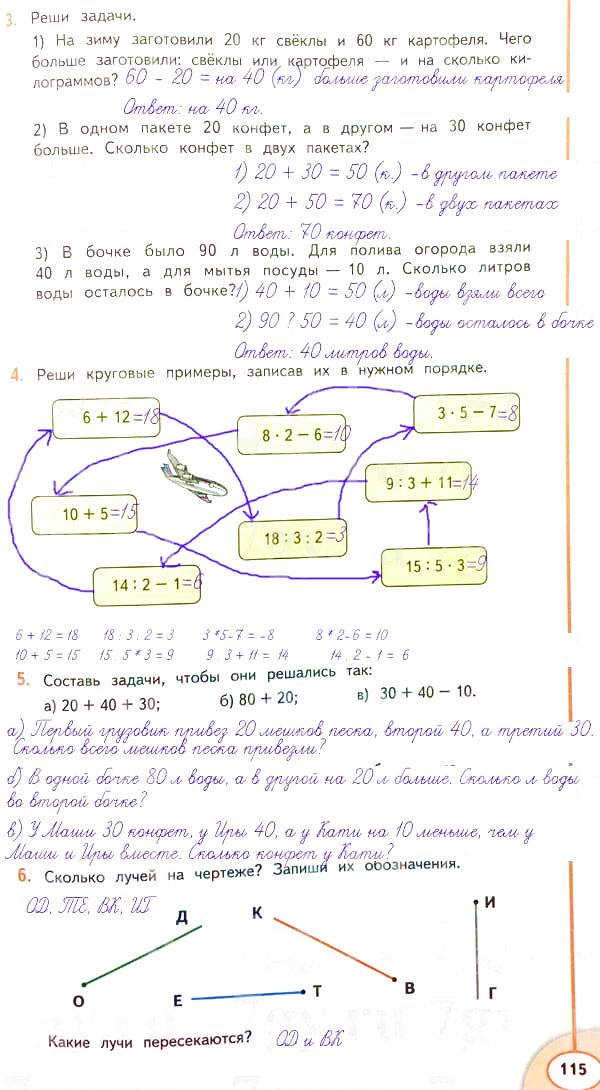 3. Реши задачи.
1) На зиму заготовили 20 кг свёклы и 60 кг картофеля. Чего
больше заготовили: свёклы или картофеля — и на сколько ки-
лограммов? 60 - 20 = на 40 (кг) больше заготовили картофеля
Ответ: на 40 кг.
2) В одном пакете 20 конфет, а в другом — на 30 конфет
больше. Сколько конфет в двух пакетах?
1) 20 + 30 = 50 (к.) -в другом пакете
2) 20 + 50 = 70 (к.) -в двух пакетах
Ответ: 70 конфет.
3) В бочке было 90 л воды. Для полива огорода взяли
40 л воды, а для мытья посуды — 10 л. Сколько литров
воды осталось в бочке? 1) 40 + 10 = 50 (л) -воды взяли всего
2) 90 ? 50 = 40 (л) -воды осталось в бочке
Ответ: 40 литров воды.
4. Реши круговые примеры, записав их в нужном порядке.
6 + 12 =18
8 · 2 − 6 =10
3 · 5 − 7 =8
10 + 5 =15
18 : 3 : 2 =3
9 : 3 + 11 =14
14 : 2 − 1 =6
15 : 5 · 3 =9
6 + 12 = 18 18 : 3 : 2 = 3 3 *5-7 = -8 8 * 2-6 = 10
10 + 5 = 15 15 : 5 * 3 = 9 9 : 3 + 11 = 14 14 : 2 - 1 = 6
5. Составь задачи, чтобы они решались так:
а) 20 + 40 + 30; б) 80 + 20; в) 30 + 40 − 10.
а) Первый грузовик привез 20 мешков песка, второй 40, а третий 30.
Сколько всего мешков песка привезли?
б) В одной бочке 80 л воды, а в другой на 20 л больше. Сколько л воды
во второй бочке?
в) У Маши 30 конфет, у Иры 40, а у Кати на 10 меньше, чем у
Маши и Иры вместе. Сколько конфет у Кати?
6. Сколько лучей на чертеже? Запиши их обозначения.
ОД, ТЕ, ВК, ИГ
Д К И
О Е Т В Г
Какие лучи пересекаются? ОД и ВК
115